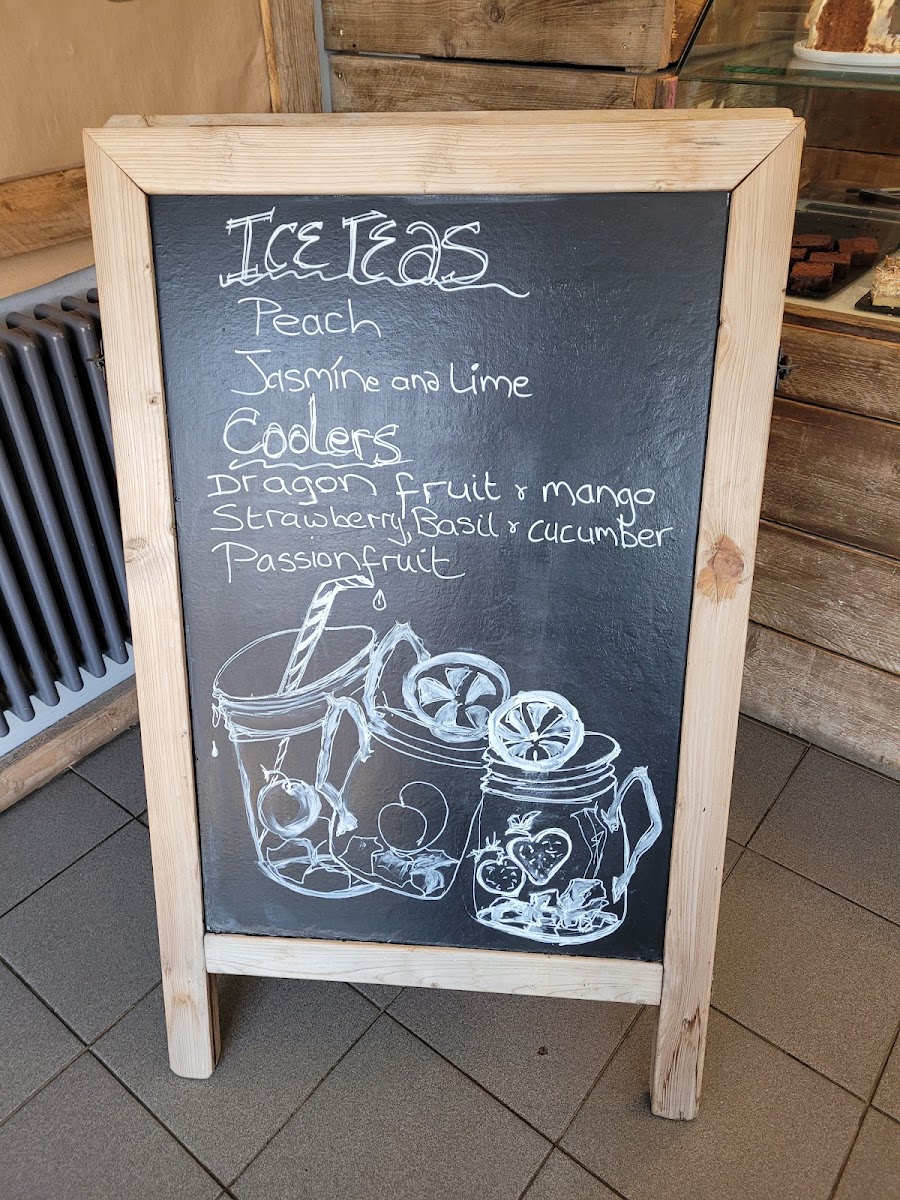 Ice Teas
Peach
Jasmine and Lime
Coolers
Dragon fruit & mango
Strawberry, Basil & cucumber
Passionfruit